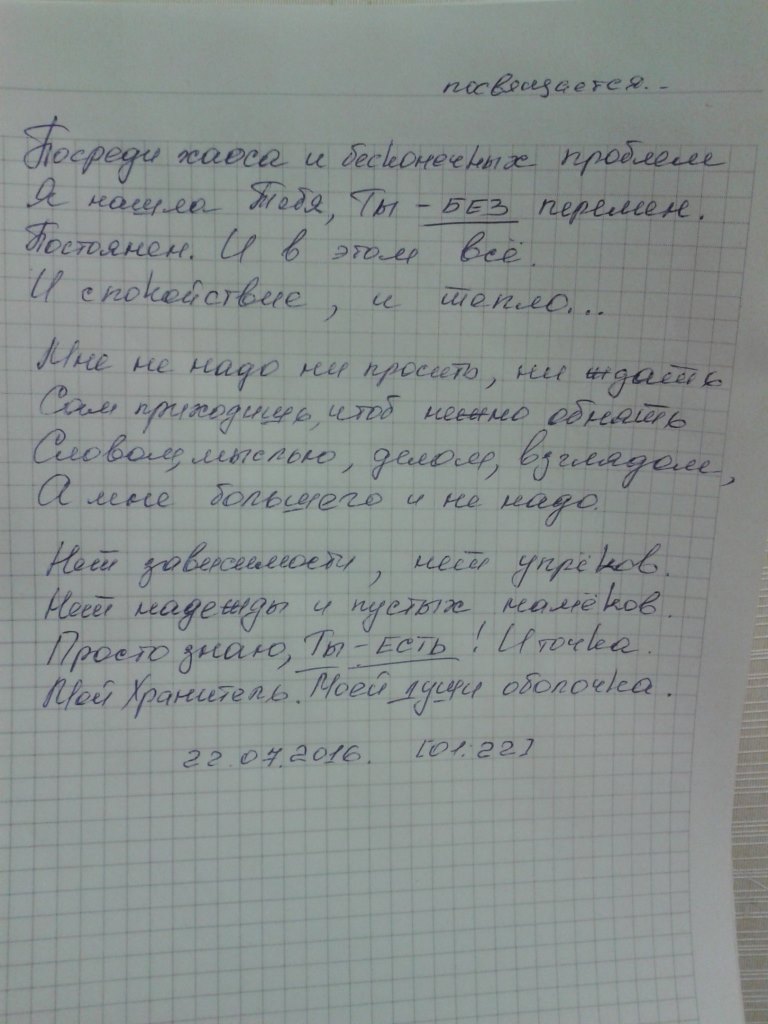 посвящается..
Посреди хаоса и бесконечных проблем
Я нашла Тебя, Ты - БЕЗ перемен.
Постоянен. И в этом всё.
И спокойствие, и тепло...
Мне не надо ни просить, ни ждать
Сам приходишь, чтоб нежно обнять
Словом, мыслью, делом, взглядом,
А мне большего и не надо.
Нет зависимости, нет упрёков.
Нет надежды и пустых намёков.
Просто знаю, Ты - ЕСТЬ! И точка.
Мой Хранитель. Моей души оболочка.
22.07.2016. [01:22]